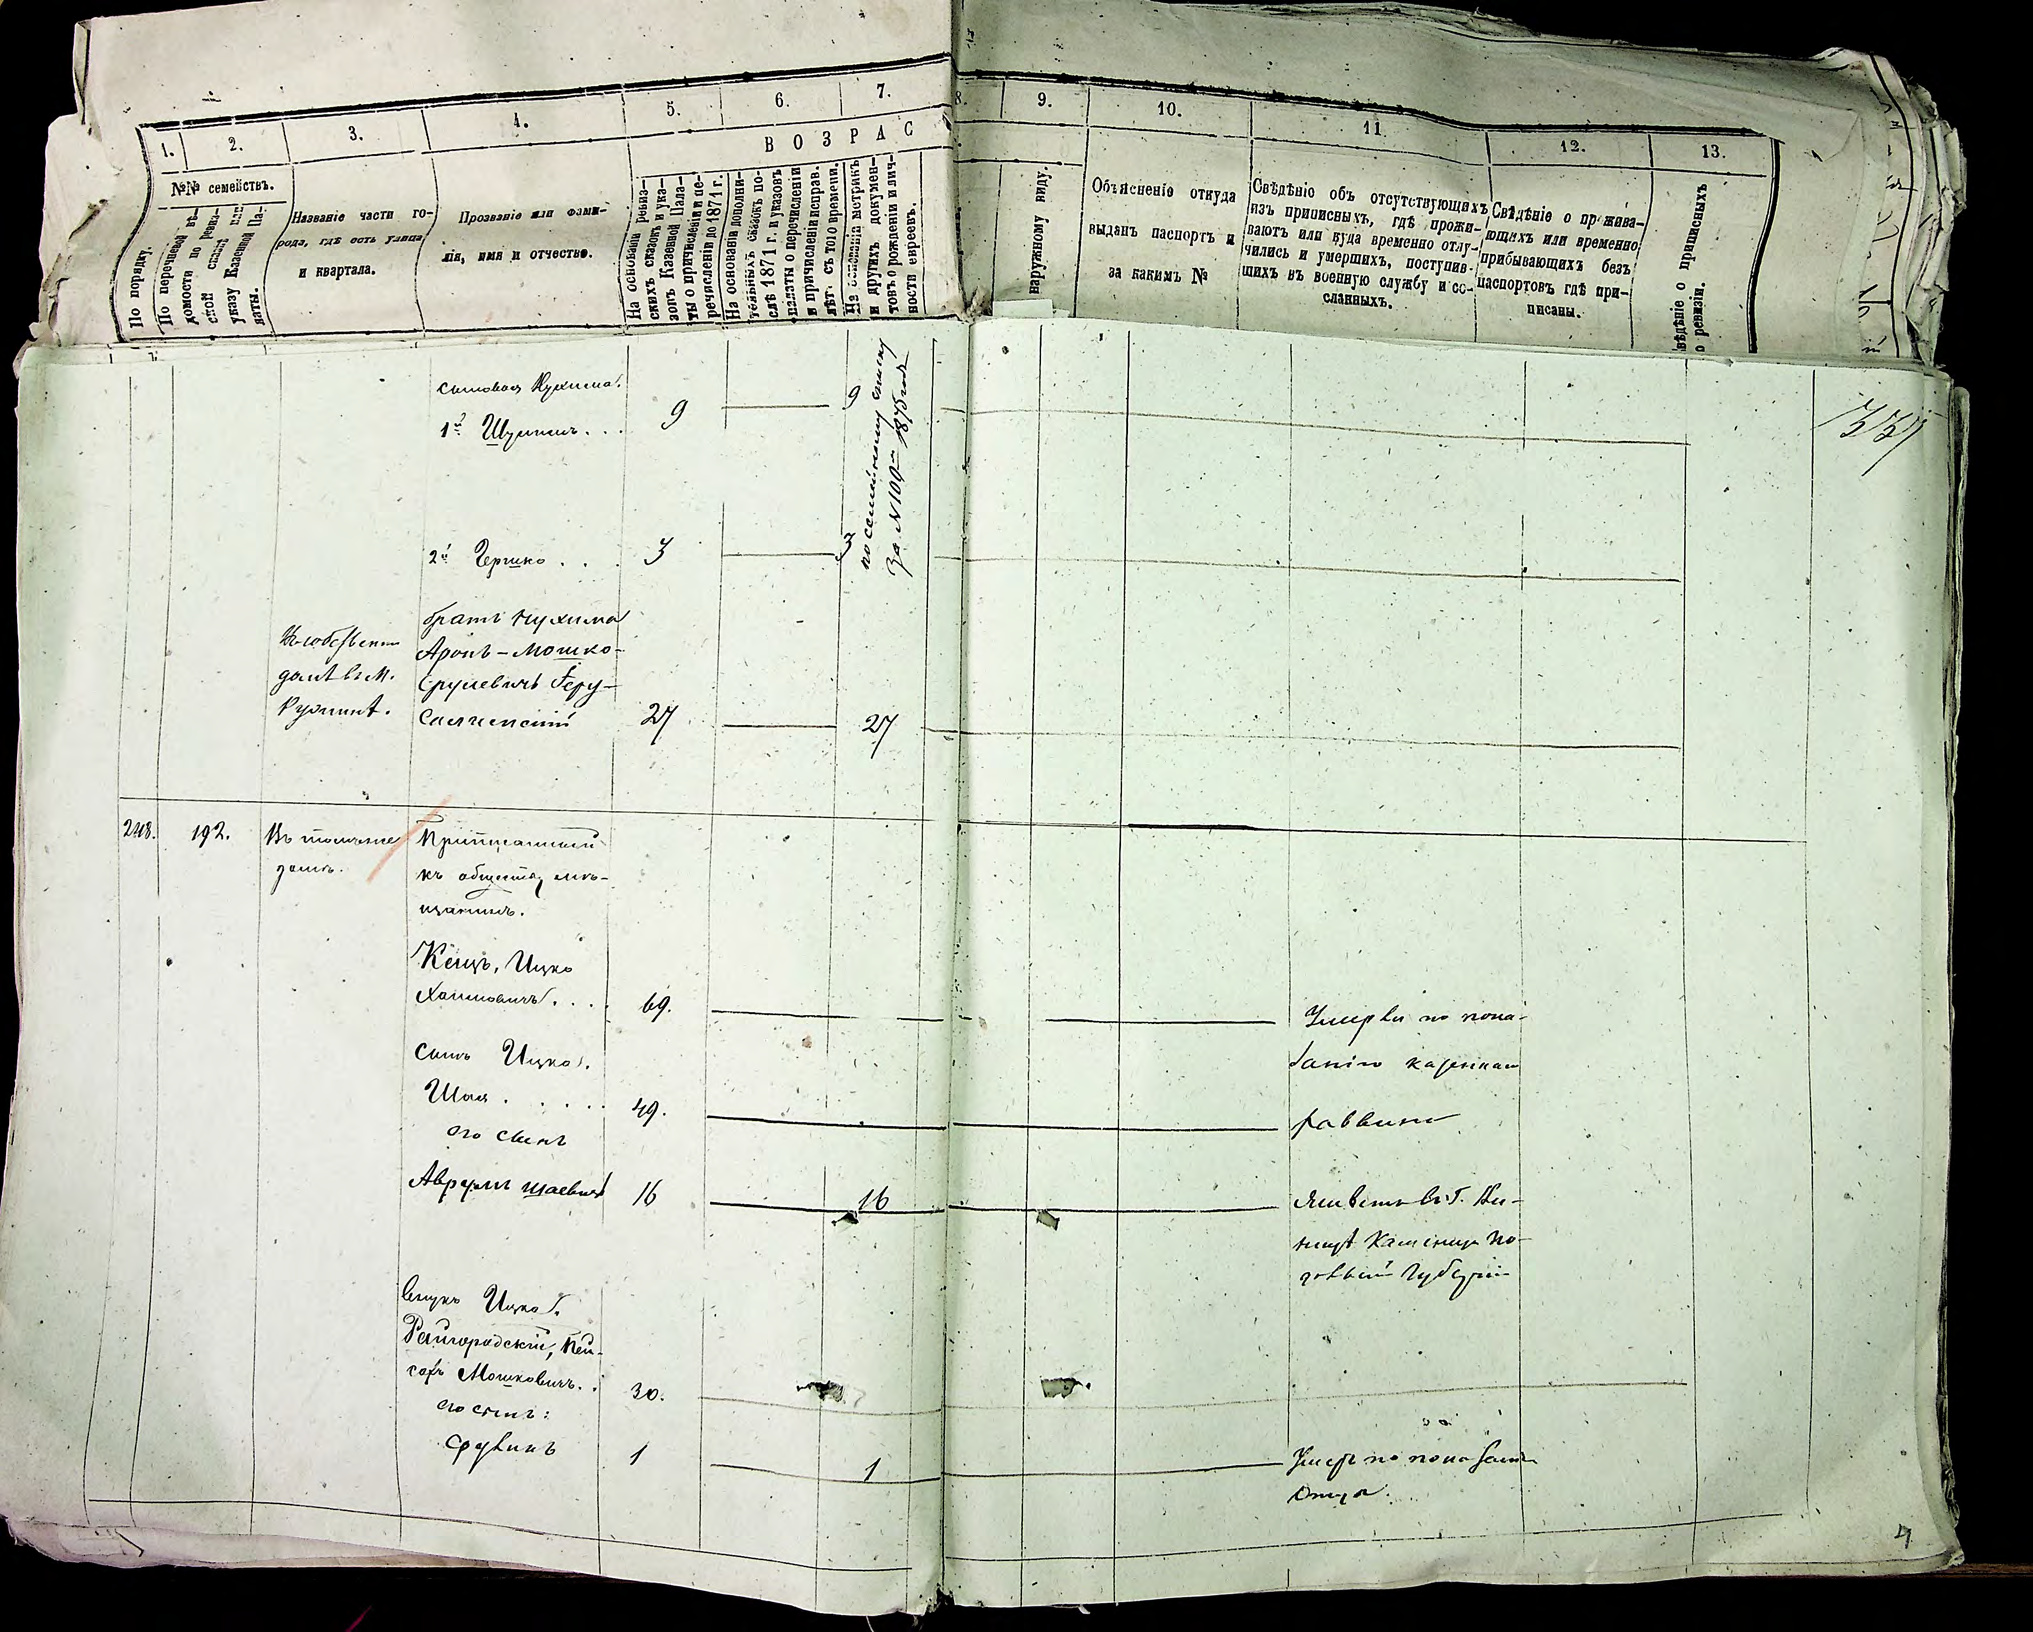 1.
2.
3.
4.
5.
6.
7.
8.
9.
10.
11.
12.
13.
В О З Р А С
№№ семействъ.
По порядку.
По перечневой вѣ-
домости по ревиз-
ской сказкѣ или
указу Казенной Па-
латы.
Названіе части го-
рода, гдѣ есть улица
и квартала.
Прозваніе или фами-
лія, имя и отчество.
На основаніи ревиз-
скихъ сказокъ и ука-
зовъ Казенной Пала-
ты о причисленіи и пе-
речисленіи до 1871 г.
На основаніи дополни-
тельныхъ сказокъ по-
слѣ 1871 г. и указовъ
палаты о перечисленіи
и причисленіи исправ.
лѣт. съ того времени.
На основаніи метрикъ
и другихъ докумен-
товъ о рожденіи и лич-
ности евреевъ.
наружному виду.
Объясненіе откуда
выданъ паспортъ и
за какимъ №
Свѣдѣніе объ отсутствующихъ
изъ приписныхъ, гдѣ прожи-
ваютъ или куда временно отлу-
чились и умершихъ, поступив-
шихъ въ военную службу и со-
сланныхъ.
Свѣдѣніе о прожива-
ющихъ или временно
прибывающихъ безъ
паспортовъ гдѣ при-
писаны.
вѣдѣніе о приписныхъ
о ревизіи.
337
сыновья Нухима.
1й Шулимъ . . .
9
9
по семейному списку
за № 109 1875 год
2й Гершко . . .
3
3
Въ собствен
домѣ въ м.
Ружинѣ.
братъ Нухима
Аронъ-Мошко-
Срулевичъ Іеру-
салимскій
27
27
248.
192.
Въ
домѣ.
Приписанный
къ обществу мѣ-
щанинъ.
Кецъ, Ицко
Хаимовичъ . . . .
69.
Умерли по пока-
занію казеннаго
раввина
сынъ Ицка.
Шая . . . . .
49.
его сынъ
Аврумъ Шаевичъ
16
16
Живетъ въ г.
Каменецъ По-
дольской Губерніи
внукъ Ицка.
Райгородскій, Лей-
зоръ Мошковичъ. .
30.
его сынъ:
Срулинъ
1
1
Умеръ по показанію
Отца.